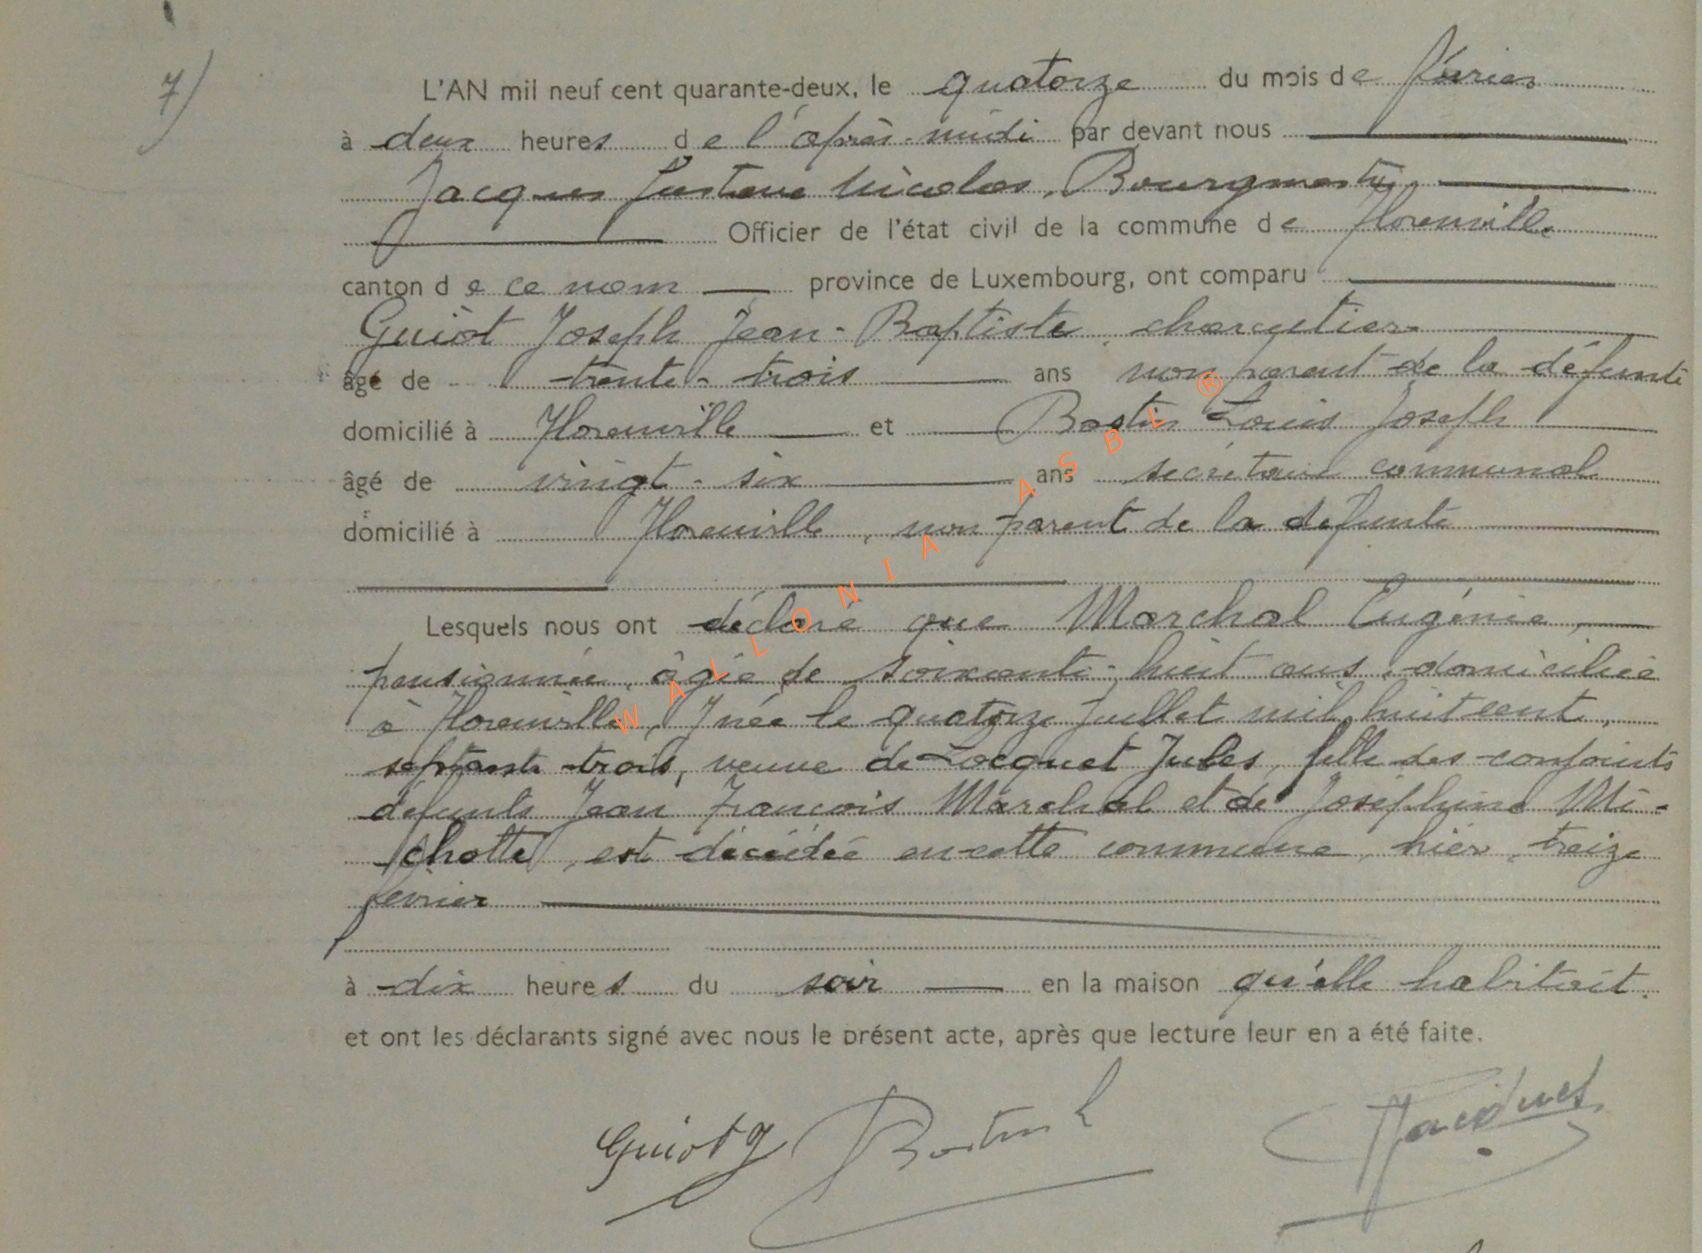 7)
L'AN mil neuf cent quarante-deux, le quatorze du mois de février
à deux heures de l'après-midi par devant nous
Jacques Gustave Nicolas, Bourgmestre
Officier de l'état civil de la commune de Florenville
canton de ce nom province de Luxembourg, ont comparu
Guiot Joseph Jean-Baptiste charcutier
âgé de trente-trois ans non parent de la défunte
domicilié à Florenville et Bastin Louis Joseph
âgé de vingt-six ans secrétaire communal
domicilié à Florenville, non parent de la défunte
Lesquels nous ont déclaré que Marchal Eugénie,
pensionnée, âgée de soixante-huit ans, domiciliée
à Florenville, née le quatorze juillet mil huit cent
septante trois, veuve de Locquet Jules, fille des conjoints
défunts Jean François Marchal et de Joséphine Mi-
chotte, est décédée en cette commune, hier, treize
février
à dix heures du soir en la maison qu'elle habitait.
et ont les déclarants signé avec nous le présent acte, après que lecture leur en a été faite.
Guiot J Bastin L Jacques
WALLONIA ASBL ®